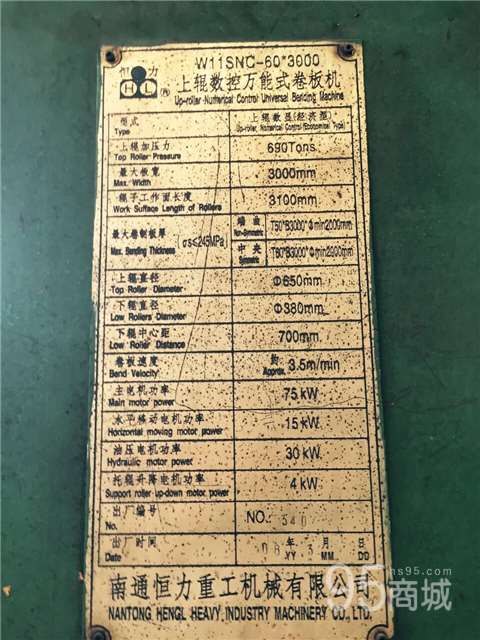 恒 力
HL ®
W11SNC-60*3000
上辊数控万能式卷板机
Up-roller Numerical Control Universal Bending Machine
型式 上辊数显(经济型)
Type Up-roller, Numerical Control(Economical Type)
上辊加压力 690Tons
Top Roller Pressure
最大板宽 3000mm
Max. Width
辊子工作面长度 3100mm
Work Suffage Length of Rollers
最大卷制板厚 σs≤245MPa
Max. Bending Thickness
端曲 T50*B3000*Φmin2000mm
Non-Symmetric
中央 T60*B3000*Φmin2900mm
Symmetric
上辊直径 Φ650mm
Top Roller Diameter
下辊直径 Φ380mm
Low Rollers Diameter
下辊中心距 700mm
Low Roller Distance
卷板速度 约 3.5m/min
Bend Velocity Approx.
主电机功率 75kW
Main motor power
水平移动电机功率 15kW
Horizontal moving motor power
油压电机功率 30kW
Hydraulic motor power
托辊升降电机功率 4kW
Support roller up-down motor power
出厂编号 NO. 540
No.
出厂时间 08 年 月 日
Date YY MM DD
南通恒力重工机械有限公司
NANTONG HENGL HEAVY INDUSTRY MACHINERY CO., LTD.
95商城